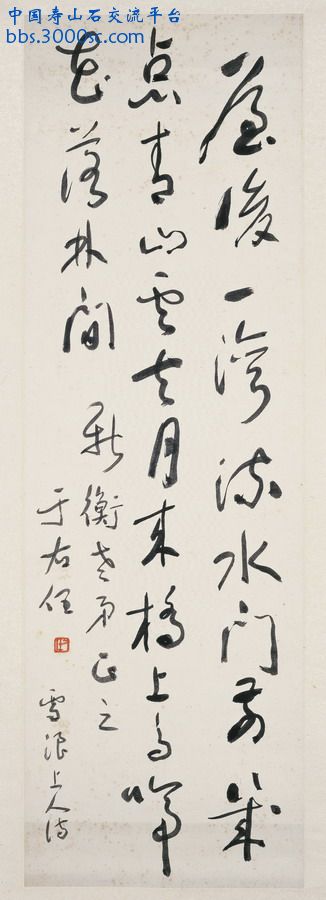 中国寿山石交流平台
bbs.3000sc.com
屋後一灣流水門前幾
点青山雲去月來橋上鳥啼
花落林間
新衡老弟正之
于右任
雪浪上人詩